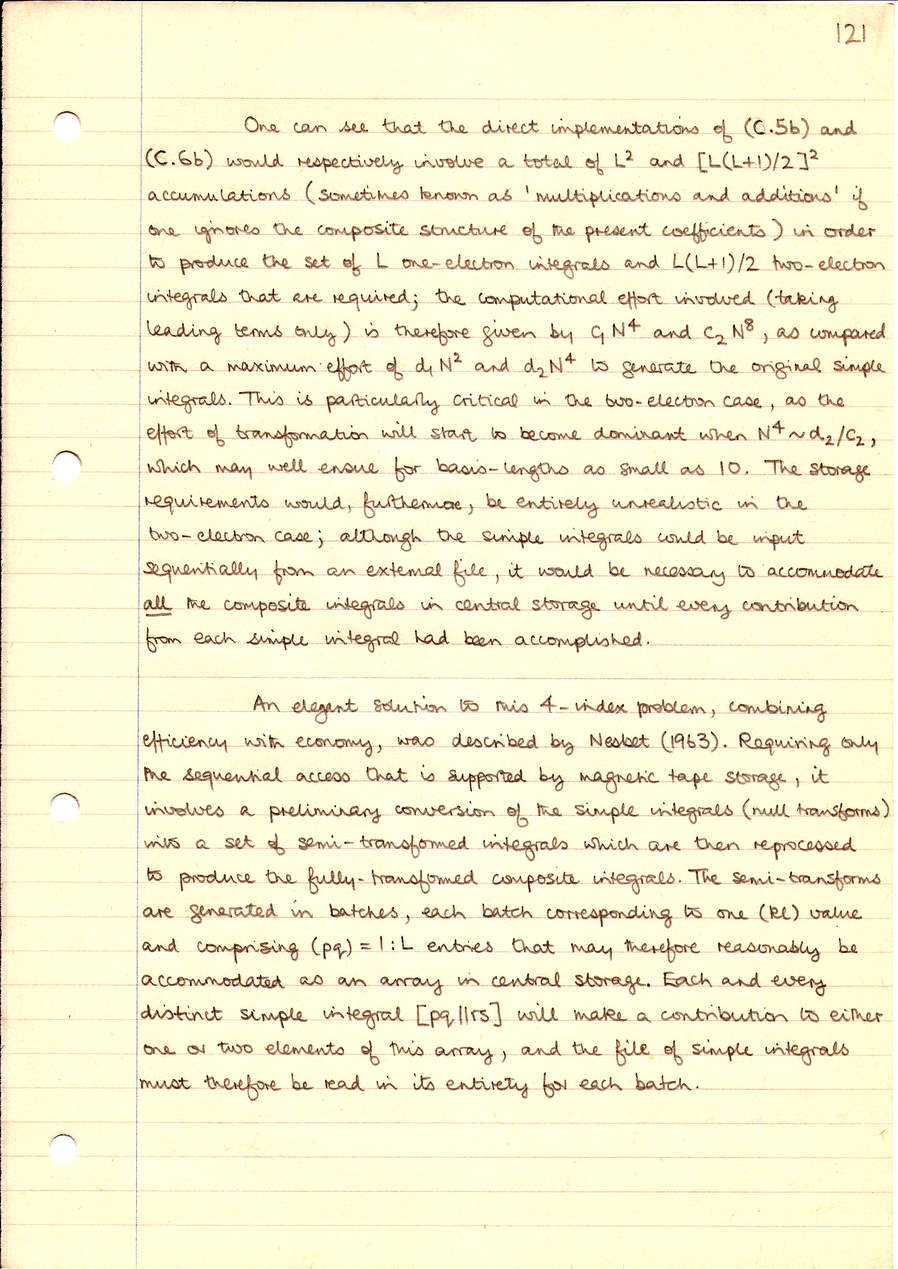 121
One can see that the direct implementations of (C.5b) and
(C.6b) would respectively involve a total of L² and [L(L+1)/2]²
accumulations (sometimes known as 'multiplications and additions' if
one ignores the composite structure of the present coefficients) in order
to produce the set of L one-electron integrals and L(L+1)/2 two-electron
integrals that are required; the computational effort involved (taking
leading terms only) is therefore given by C₁N⁴ and C₂N⁸, as compared
with a maximum effort of d₁N² and d₂N⁴ to generate the original simple
integrals. This is particularly critical in the two-electron case, as the
effort of transformation will start to become dominant when N⁴~d₂/C₂,
which may well ensue for basis-lengths as small as 10. The storage
requirements would, furthermore, be entirely unrealistic in the
two-electron case; although the simple integrals could be input
sequentially from an external file, it would be necessary to accommodate
all the composite integrals in central storage until every contribution
from each simple integral had been accomplished.
An elegant solution to this 4-index problem, combining
efficiency with economy, was described by Nesbet (1963). Requiring only
the sequential access that is supported by magnetic tape storage, it
involves a preliminary conversion of the simple integrals (null transforms)
into a set of semi-transformed integrals which are then reprocessed
to produce the fully-transformed composite integrals. The semi-transforms
are generated in batches, each batch corresponding to one (kl) value
and comprising (pq) = 1:L entries that may therefore reasonably be
accommodated as an array in central storage. Each and every
distinct simple integral [pq||rs] will make a contribution to either
one or two elements of this array, and the file of simple integrals
must therefore be read in its entirety for each batch.